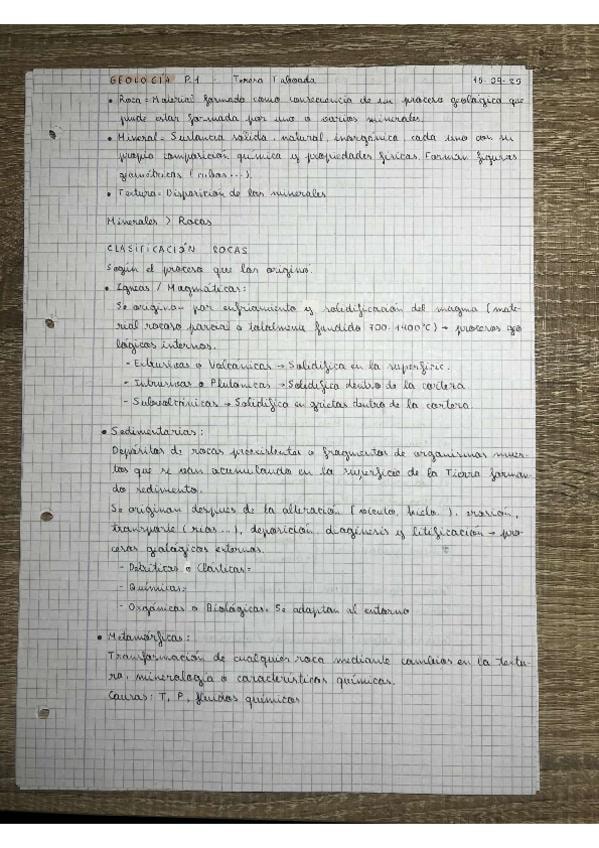 GEOLOGÍA P.1 - Teresa Taboada 15-09-25
• Roca = Material formado como consecuencia de un proceso geológico que
puede estar formada por uno o varios minerales.
• Mineral = Sustancia sólida, natural, inorgánica, cada uno con su
propia composición química y propiedades físicas. Forman figuras
geométricas (cubos...).
• Textura = Disposición de los minerales
Minerales > Rocas
CLASIFICACIÓN ROCAS
Según el proceso que las originó.
• Ígneas / Magmáticas:
Se originan por enfriamiento y solidificación del magma (mate-
rial rocoso parcial o totalmente fundido 700-1400°C) → procesos geo
lógicos internos.
- Extrusivas o Volcánicas → Solidifica en la superficie.
- Intrusivas o Plutónicas → Solidifica dentro de la corteza
- Subvolcánicas → Solidifica en grietas dentro de la corteza.
• Sedimentarias:
Depósitos de rocas preexistentes o fragmentos de organismos muer-
tos que se van acumulando en la superficie de la Tierra forman-
do sedimento.
Se originan despues de la alteración ( hielo..), erosión,
transporte (ríos...), deposición, diagénesis y litificación → pro-
cesos geológicos externos.
- Detríticas o Clásticas=
- Químicas=
- Orgánicas o Biológicas. Se adaptan al entorno
• Metamórficas:
Transformación de cualquier roca mediante cambios en la textu-
ra, mineralogía o características químicas.
Causas: T, P, fluidos químicos